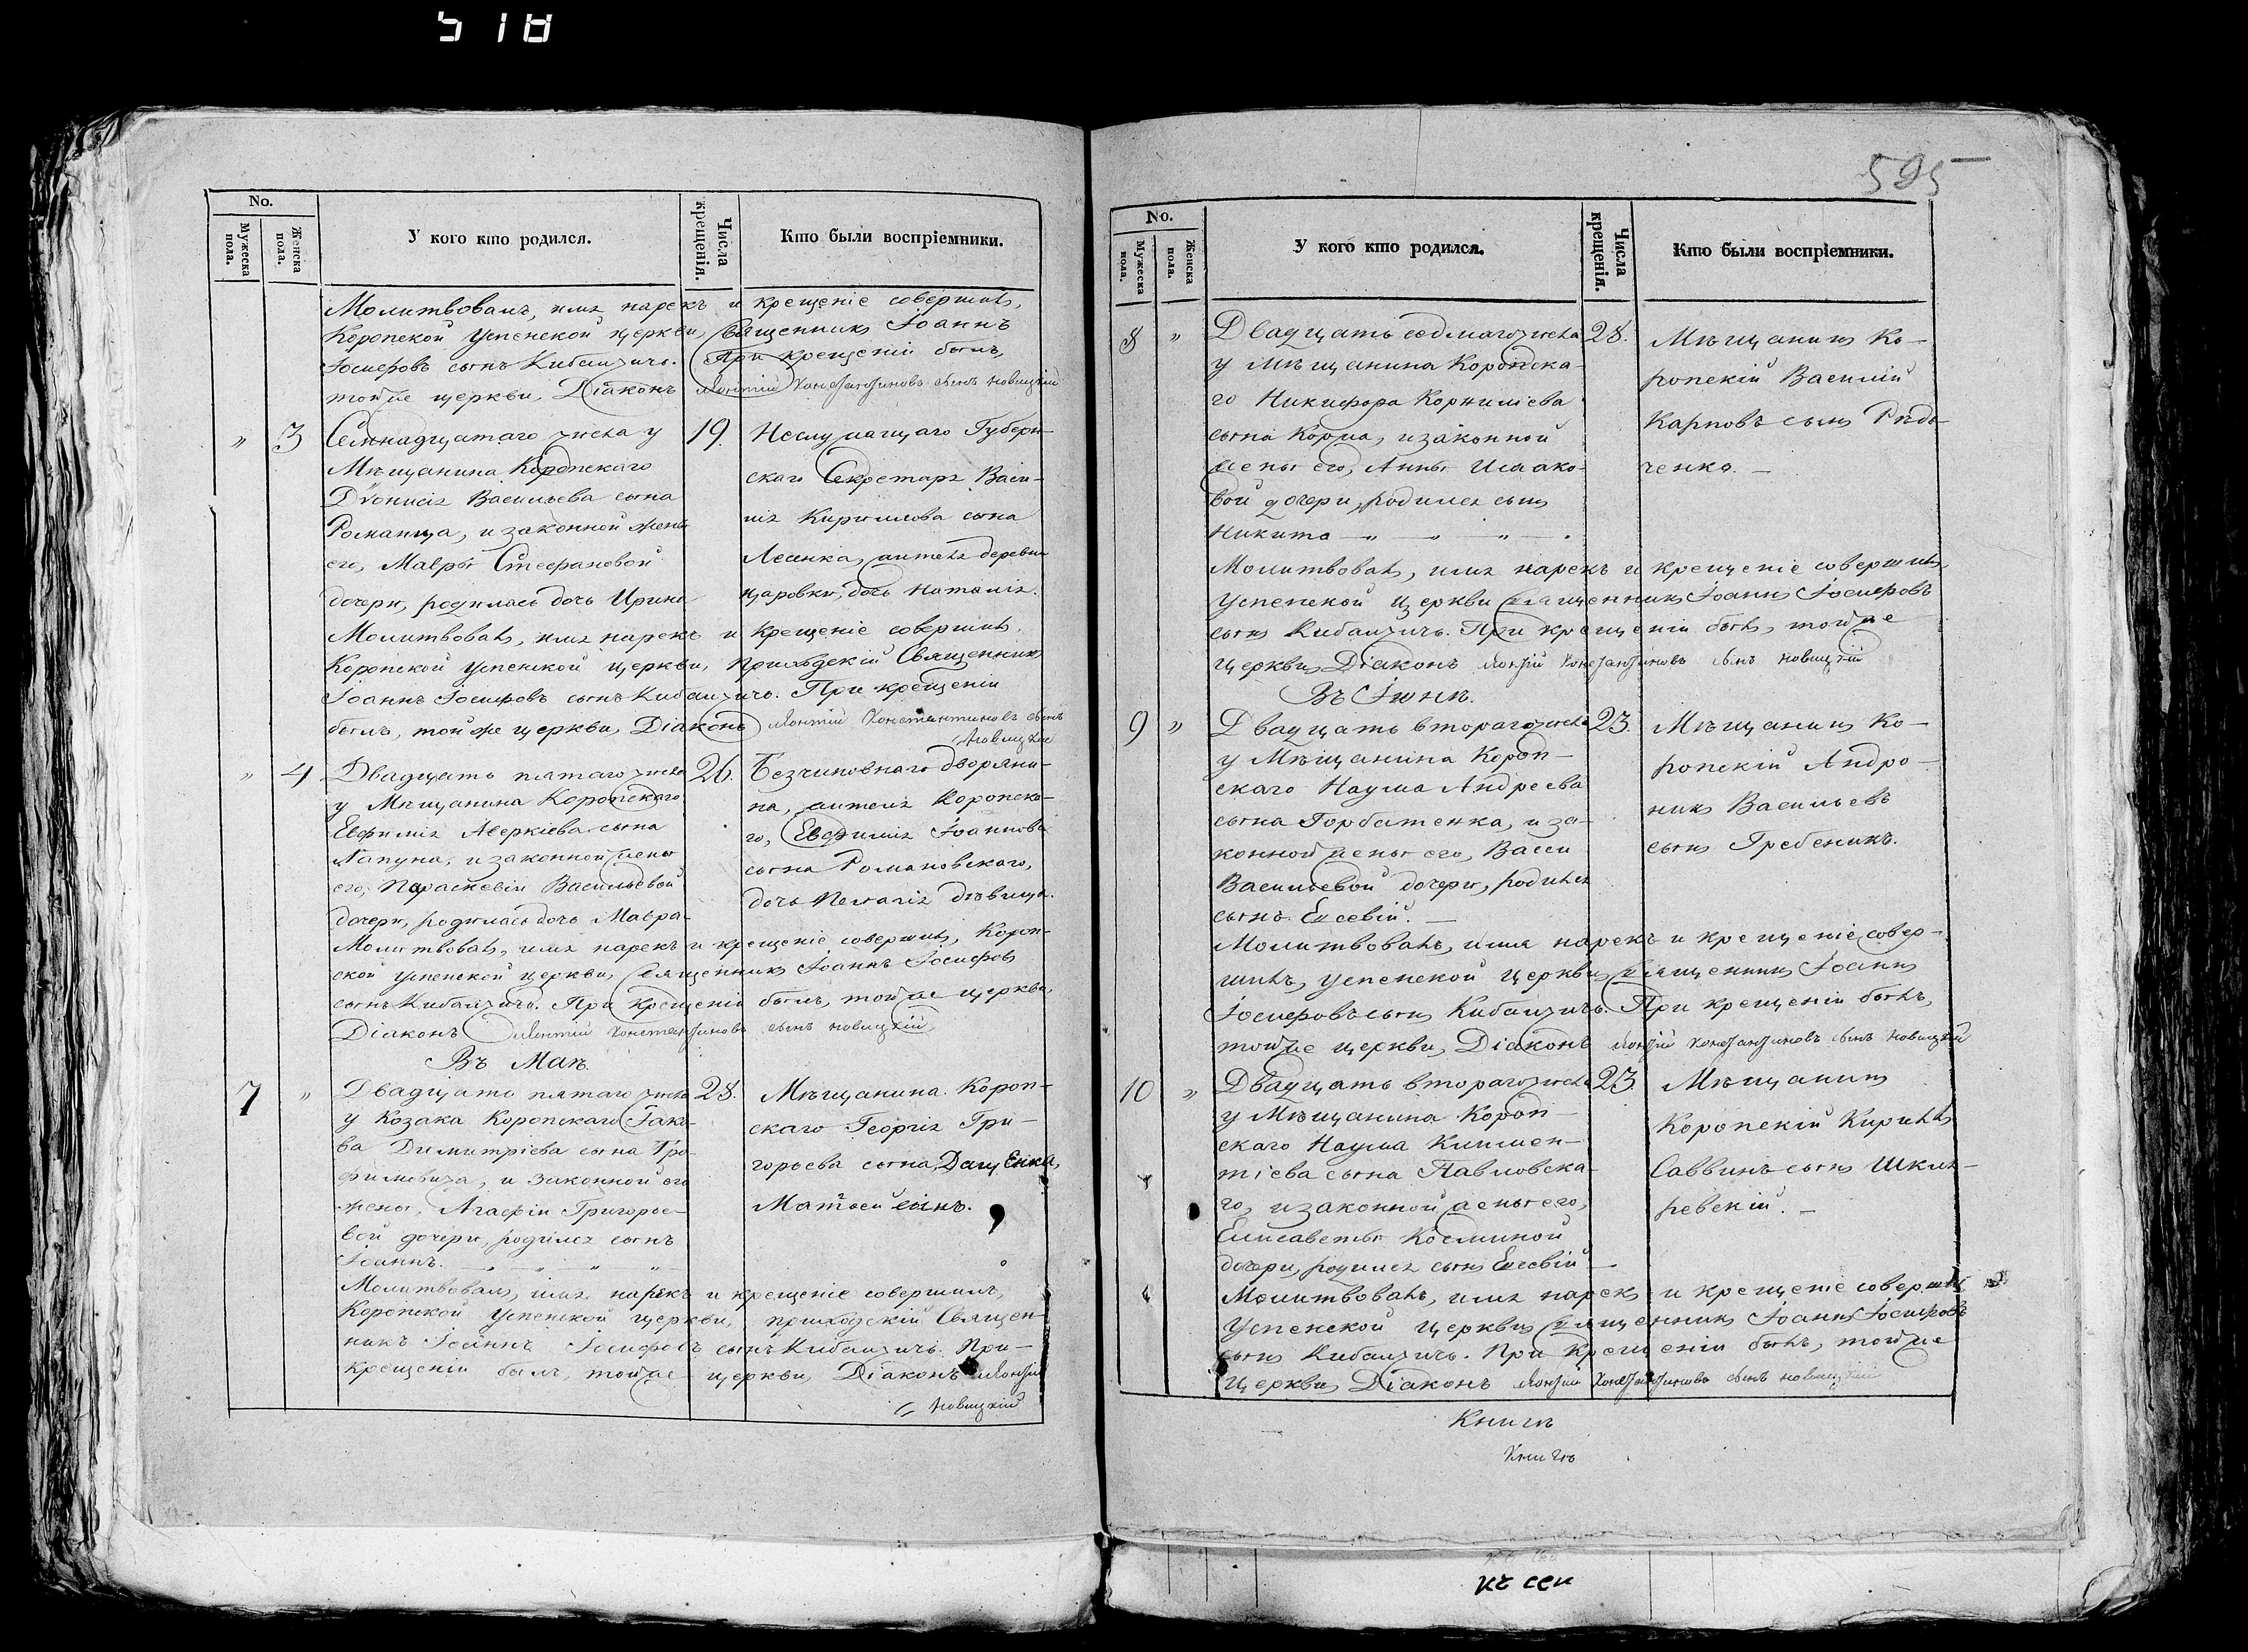 518
No.
Мужеска пола.
Женска пола.
У кого кто родился.
Числа крещенія.
Кто были воспріемники.
Молитвовалъ, имя нарекъ и крещеніе совершилъ,
Коропской Успенской церкви, Священникъ Іоаннъ
Іосифовъ сынъ Кибальчичъ. При крещеніи былъ,
той же церкви, Діаконъ Леонтій Константиновъ сынъ Новицкій
" 3 Семнадцатаго числа у 19.
Мѣщанина Коропскаго
Діонисія Васильева сына
Романца, и законной жены
его, Мавры Стефановой
дочери, родилась дочь Ирина
Неслужащаго Губерн-
скаго Секретаря Васи-
лія Кириллова сына
Лесенка, жителя деревни
царовки, дочь Наталія.
Молитвовалъ, имя нарекъ и крещеніе совершилъ,
Коропской Успенской церкви, приходскій Священникъ
Іоаннъ Іосифовъ сынъ Кибальчичъ. При крещеніи
былъ, той же церкви, Діаконъ Леонтій Константиновъ сынъ
Новицкій
" 4 Двадцать пятаго числа 26.
у Мѣщанина Коропскаго
Евфимія Аверкіева сына
Лапуна, и законной жены
его, Параскевіи Васильевой
дочери, родилась дочь Мавра
Безчиновнаго дворяни-
на, жителя Коропска-
го, Евфимія Іоаннова
сына Романовскаго,
дочь Пелагія дѣвица.
Молитвовалъ, имя нарекъ и крещеніе совершилъ, Короп-
ской Успенской церкви, Священникъ Іоаннъ Іосифовъ
сынъ Кибальчичъ. При крещеніи былъ, той же церкви,
Діаконъ Леонтій Константиновъ сынъ Новицкій
Въ Маѣ.
7 " Двадцать пятаго числа 28.
у Козака Коропскаго Іако-
ва Димитріева сына Тро-
фимовича, и законной его
жены, Агафіи Григорье-
вой дочери, родился сынъ
Іоаннъ.
Мѣщанина Короп-
скаго Георгія Гри-
горьева сына, Дащенка,
Матѳей сынъ.
Молитвовалъ, имя нарекъ и крещеніе совершилъ,
Коропской Успенской церкви, приходскій Священ-
никъ Іоаннъ Іосифовъ сынъ Кибальчичъ. При
крещеніи былъ, той же церкви, Діаконъ Леонтій
Новицкій
595
No.
Мужеска пола.
Женска пола.
У кого кто родился.
Числа крещенія.
Кто были воспріемники.
8 " Двадцать седмаго числа 28.
у Мѣщанина Коропска-
го Никифора Корниліева
сына Корма, и законной
жены его, Анны Исаако-
вой дочери, родился сынъ
Никита
Мѣщанинъ Ко-
ропскій Василій
Карповъ сынъ Рѣдь-
ченко.
Молитвовалъ, имя нарекъ и крещеніе совершилъ,
Успенской церкви Священникъ Іоаннъ Іосифовъ
сынъ Кибальчичъ. При крещеніи былъ, той же
церкви, Діаконъ Леонтій Константиновъ сынъ Новицкій
Въ Іюнѣ.
9 " Двадцать втораго числа 23.
у Мѣщанина Короп-
скаго Наума Андреева
сына Горбатенка, и за-
конной жены его, Васси
Васильевой дочери, родился
сынъ Евсевій.
Мѣщанинъ Ко-
ропскій Андро-
никъ Васильевъ
сынъ Гребеникъ.
Молитвовалъ, имя нарекъ и крещеніе совер-
шилъ, Успенской церкви, Священникъ Іоаннъ
Іосифовъ сынъ Кибальчичъ. При крещеніи былъ,
той же церкви, Діаконъ Леонтій Константиновъ сынъ Новицкій
10 " Двадцать втораго числа 23.
у Мѣщанина Короп-
скаго Наума Климен-
тіева сына Павловска-
го, и законной жены его,
Елисаветы Косминой
дочери, родился сынъ Евсевій
Мѣщанинъ
Коропскій Кириллъ
Саввинъ сынъ Шкля-
ревскій.
Молитвовалъ, имя нарекъ и крещеніе совершилъ
Успенской церкви Священникъ Іоаннъ Іосифовъ
сынъ Кибальчичъ. При крещеніи былъ, той же
церкви, Діаконъ Леонтій Константиновъ сынъ Новицкій
Книгѣ
Книгѣ
къ сей